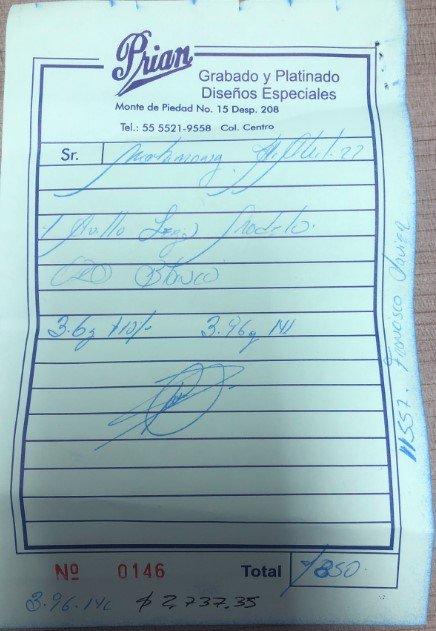 Prian
Grabado y Platinado
Diseños Especiales
Monte de Piedad No. 15 Desp. 208
Tel.: 55 5521-9558 Col. Centro
Sr.
Modelo
Oro Blanco
3.6g +10% 3.96g NI
Nº 0146 Total 850.
3.96.14k $2,737.35
11557. Francisco Javier